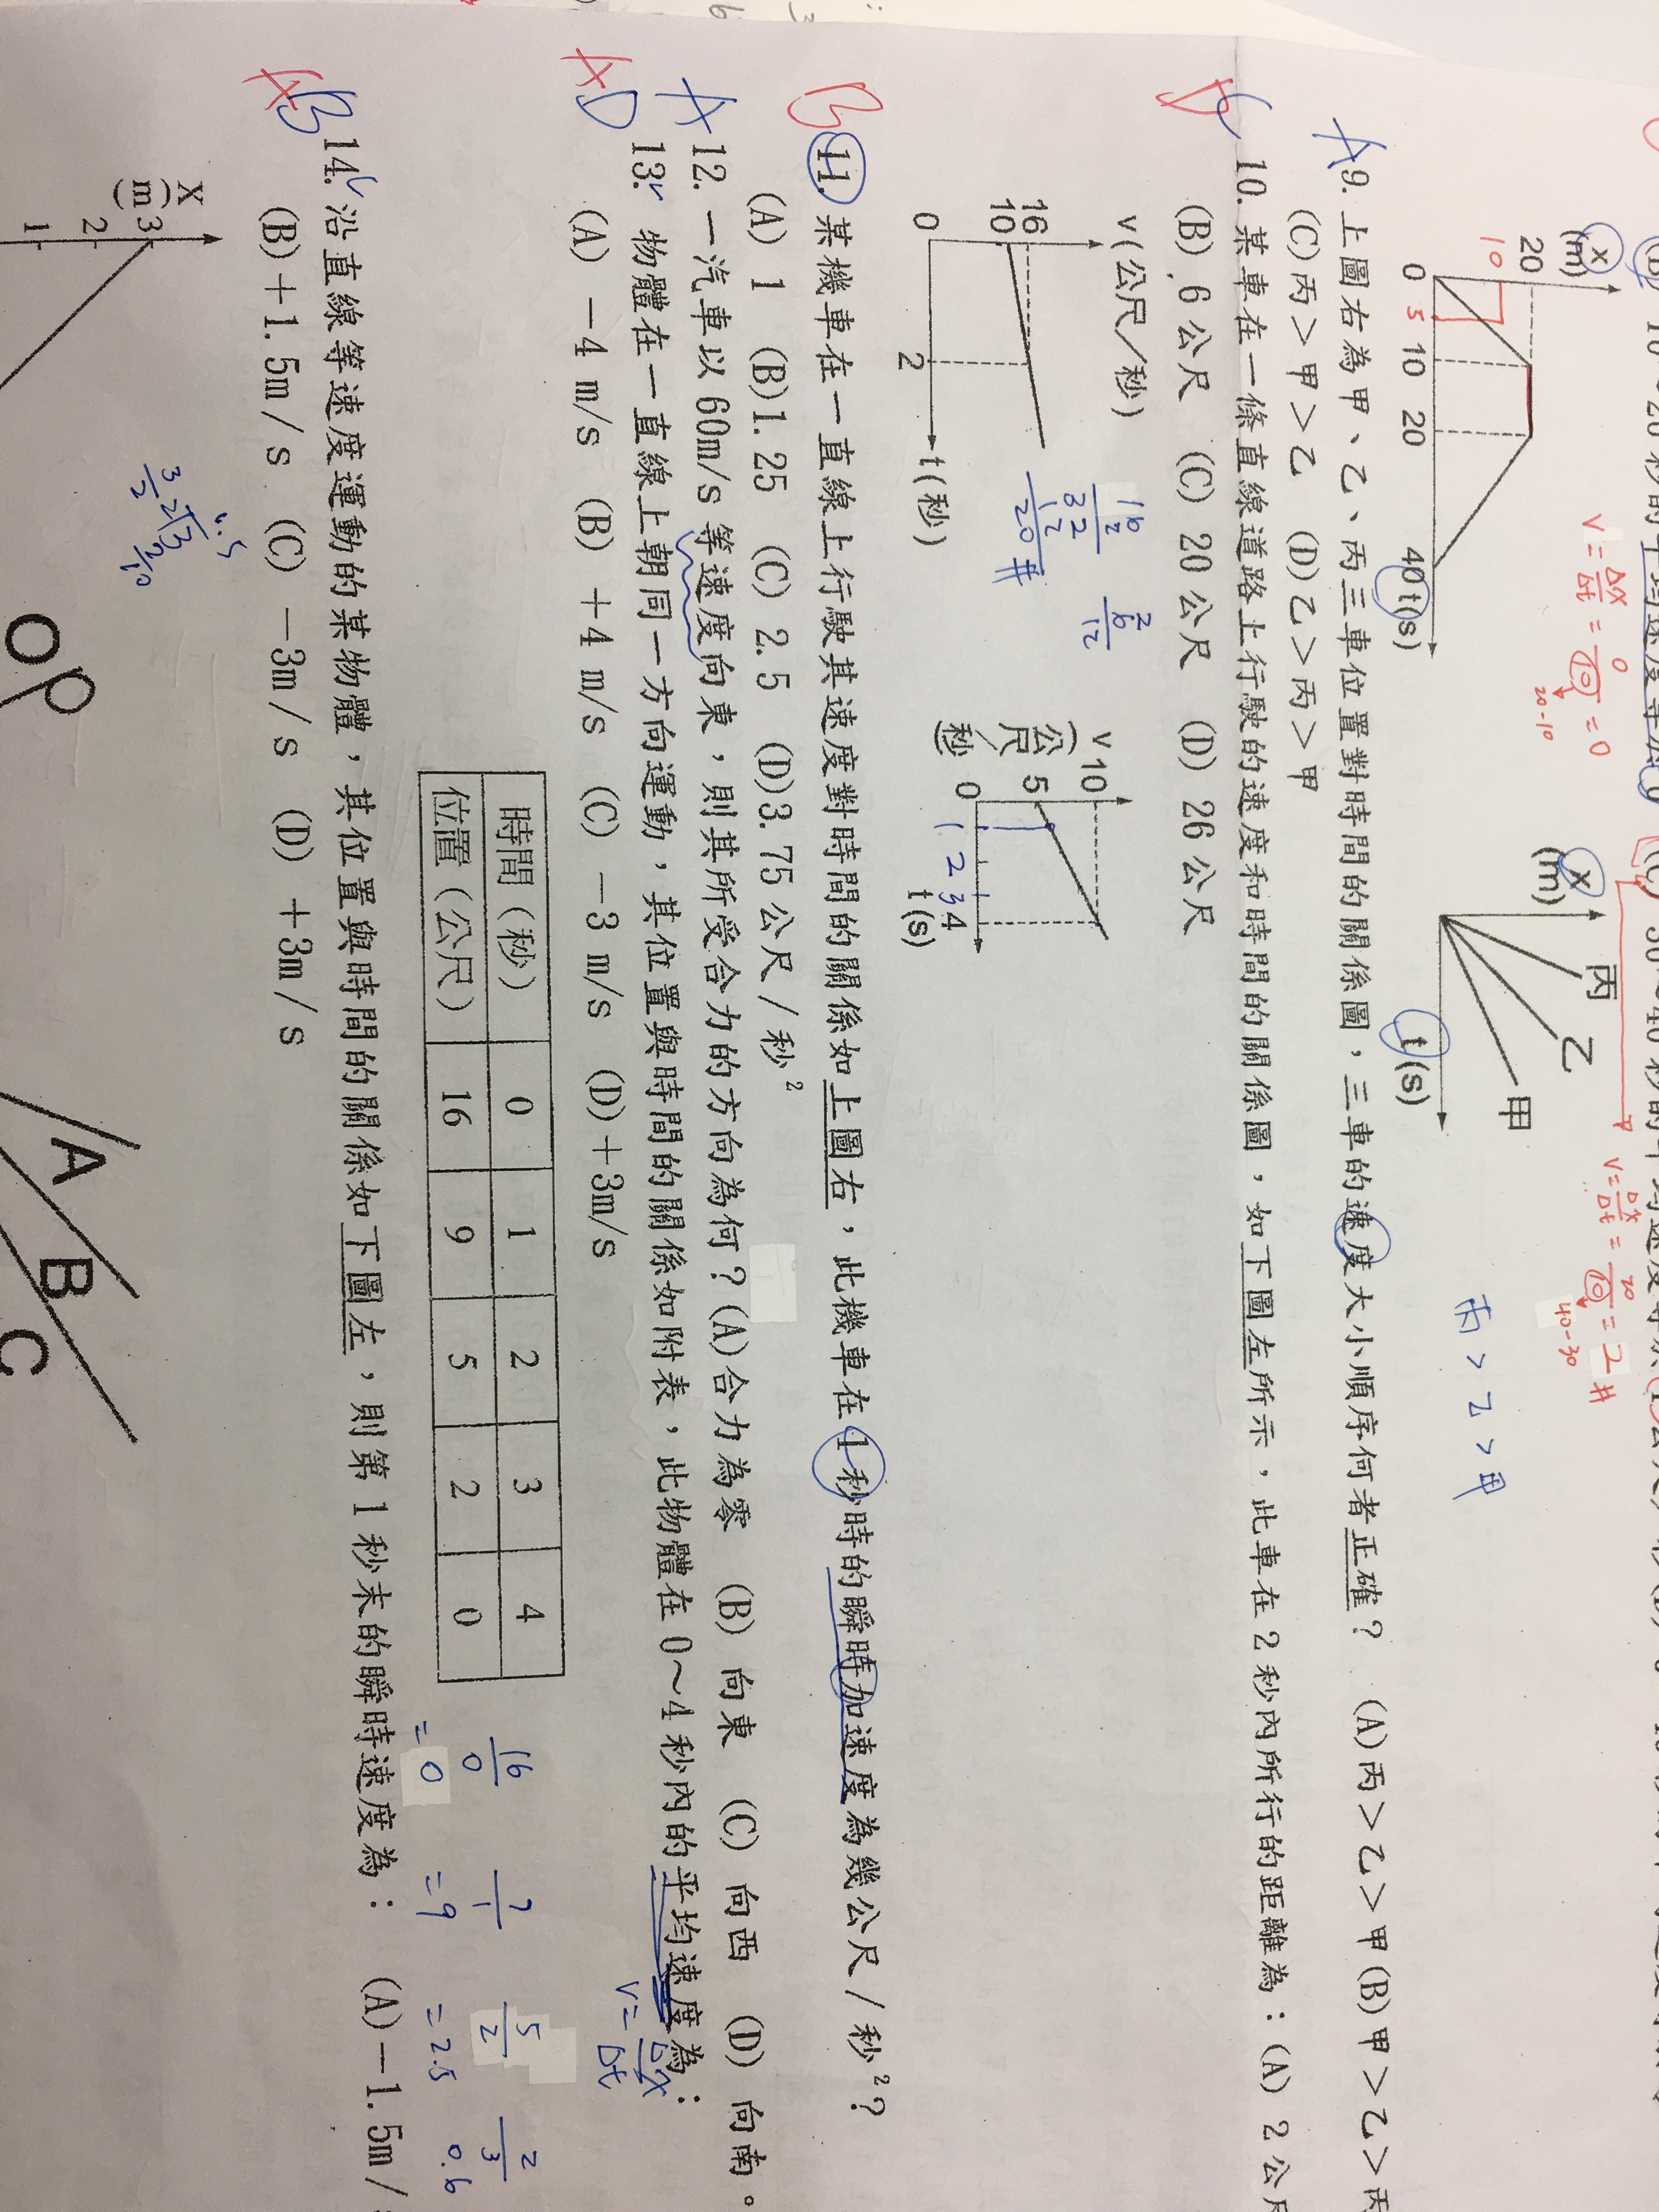 x
(m)
20
10
0 5 10 20 40 t(s)
V=Δx/Δt=0/10=0
20-10
x
(m)
丙
乙
甲
t(s)
V=Δx/Δt=20/10=2#
40-30
丙>乙>甲
A 9. 上圖右為甲、乙、丙三車位置對時間的關係圖,三車的速度大小順序何者正確? (A)丙>乙>甲(B)甲>乙>丙
(C)丙>甲>乙 (D)乙>丙>甲
10. 某車在一條直線道路上行駛的速度和時間的關係圖,如下圖左所示,此車在2秒內所行的距離為:(A) 2公尺
(B) 6公尺 (C) 20公尺 (D) 26公尺
v(公尺/秒)
16
10
0 2 t(秒)
16
2
32
12
20#
2
6
12
v(公尺/秒)
10
5
0 1 2 3 4
t(s)
B 11. 某機車在一直線上行駛其速度對時間的關係如上圖右,此機車在1秒時的瞬時加速度為幾公尺/秒²?
(A) 1 (B)1.25 (C) 2.5 (D)3.75公尺/秒²
A 12. 一汽車以60m/s等速度向東,則其所受合力的方向為何?(A)合力為零 (B) 向東 (C) 向西 (D) 向南。
A D 13. 物體在一直線上朝同一方向運動,其位置與時間的關係如附表,此物體在0~4秒內的平均速度為:
V=Δx/Δt
(A) -4 m/s (B) +4 m/s (C) -3 m/s (D)+3m/s
時間(秒) 0 1 2 3 4
位置(公尺) 16 9 5 2 0
16/0 =0
=9
5/2 =2.5
2/3 0.6
A B 14. 沿直線等速度運動的某物體,其位置與時間的關係如下圖左,則第1秒末的瞬時速度為: (A)-1.5m/
(B)+1.5m/s (C) -3m/s (D) +3m/s
X
(m)
3
2
1
A
B
C